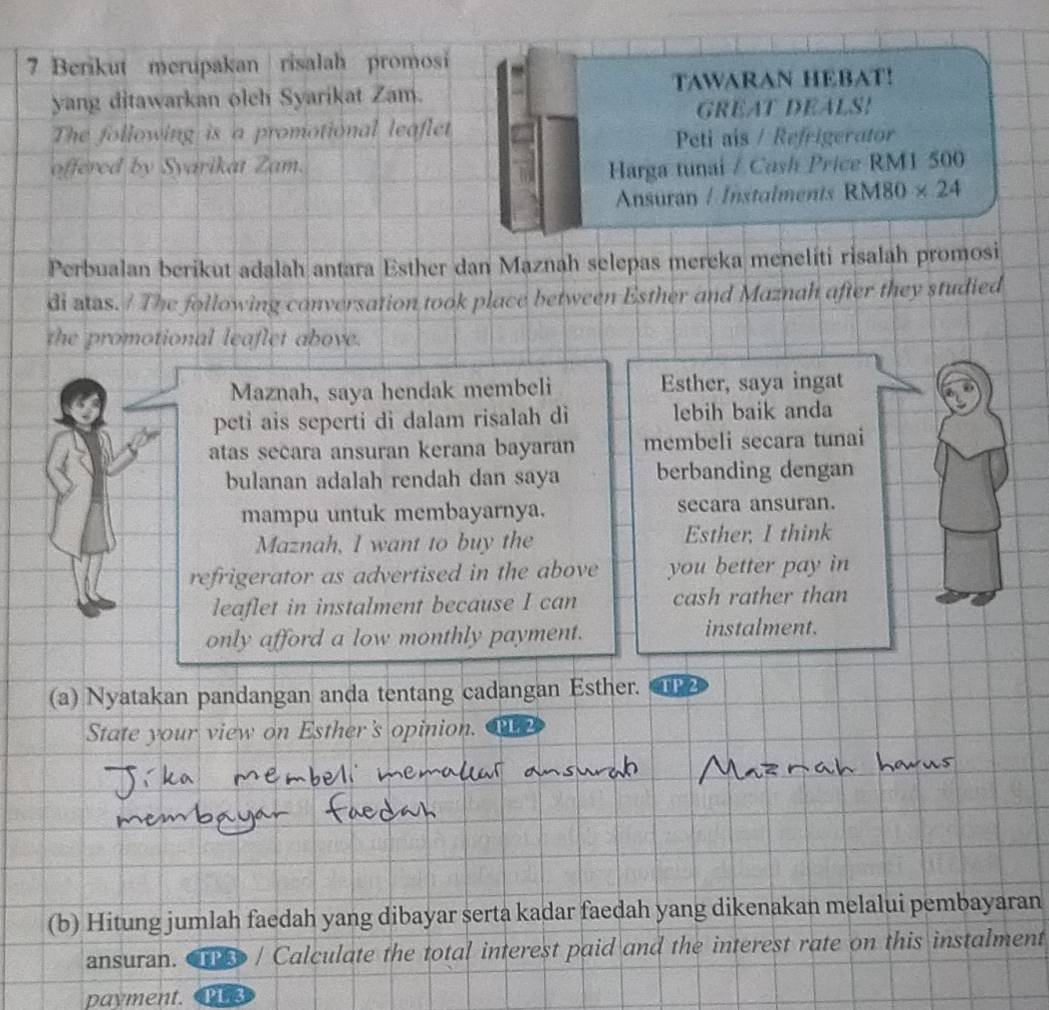 7 Berikut merupakan risalah promosi
yang ditawarkan oleh Syarikat Zam.
The following is a promotional leaflet
offered by Syarikat Zam.
TAWARAN HEBAT!
GREAT DEALS!
Peti ais / Refrigerator
Harga tunai / Cash Price RM1 500
Ansuran / Instalments RM80 × 24
Perbualan berikut adalah antara Esther dan Maznah selepas mereka meneliti risalah promosi
di atas. / The following conversation took place between Esther and Maznah after they studied
the promotional leaflet above.
Maznah, saya hendak membeli
peti ais seperti di dalam risalah di
atas secara ansuran kerana bayaran
bulanan adalah rendah dan saya
mampu untuk membayarnya.
Maznah, I want to buy the
refrigerator as advertised in the above
leaflet in instalment because I can
only afford a low monthly payment.
Esther, saya ingat
lebih baik anda
membeli secara tunai
berbanding dengan
secara ansuran.
Esther, I think
you better pay in
cash rather than
instalment.
(a) Nyatakan pandangan anda tentang cadangan Esther. TP 2
State your view on Esther's opinion. PL 2
Jika membeli memakai ansurah Maznah harus
membayar faedah
(b) Hitung jumlah faedah yang dibayar serta kadar faedah yang dikenakan melalui pembayaran
ansuran. TP 3 / Calculate the total interest paid and the interest rate on this instalment
payment. PL 3